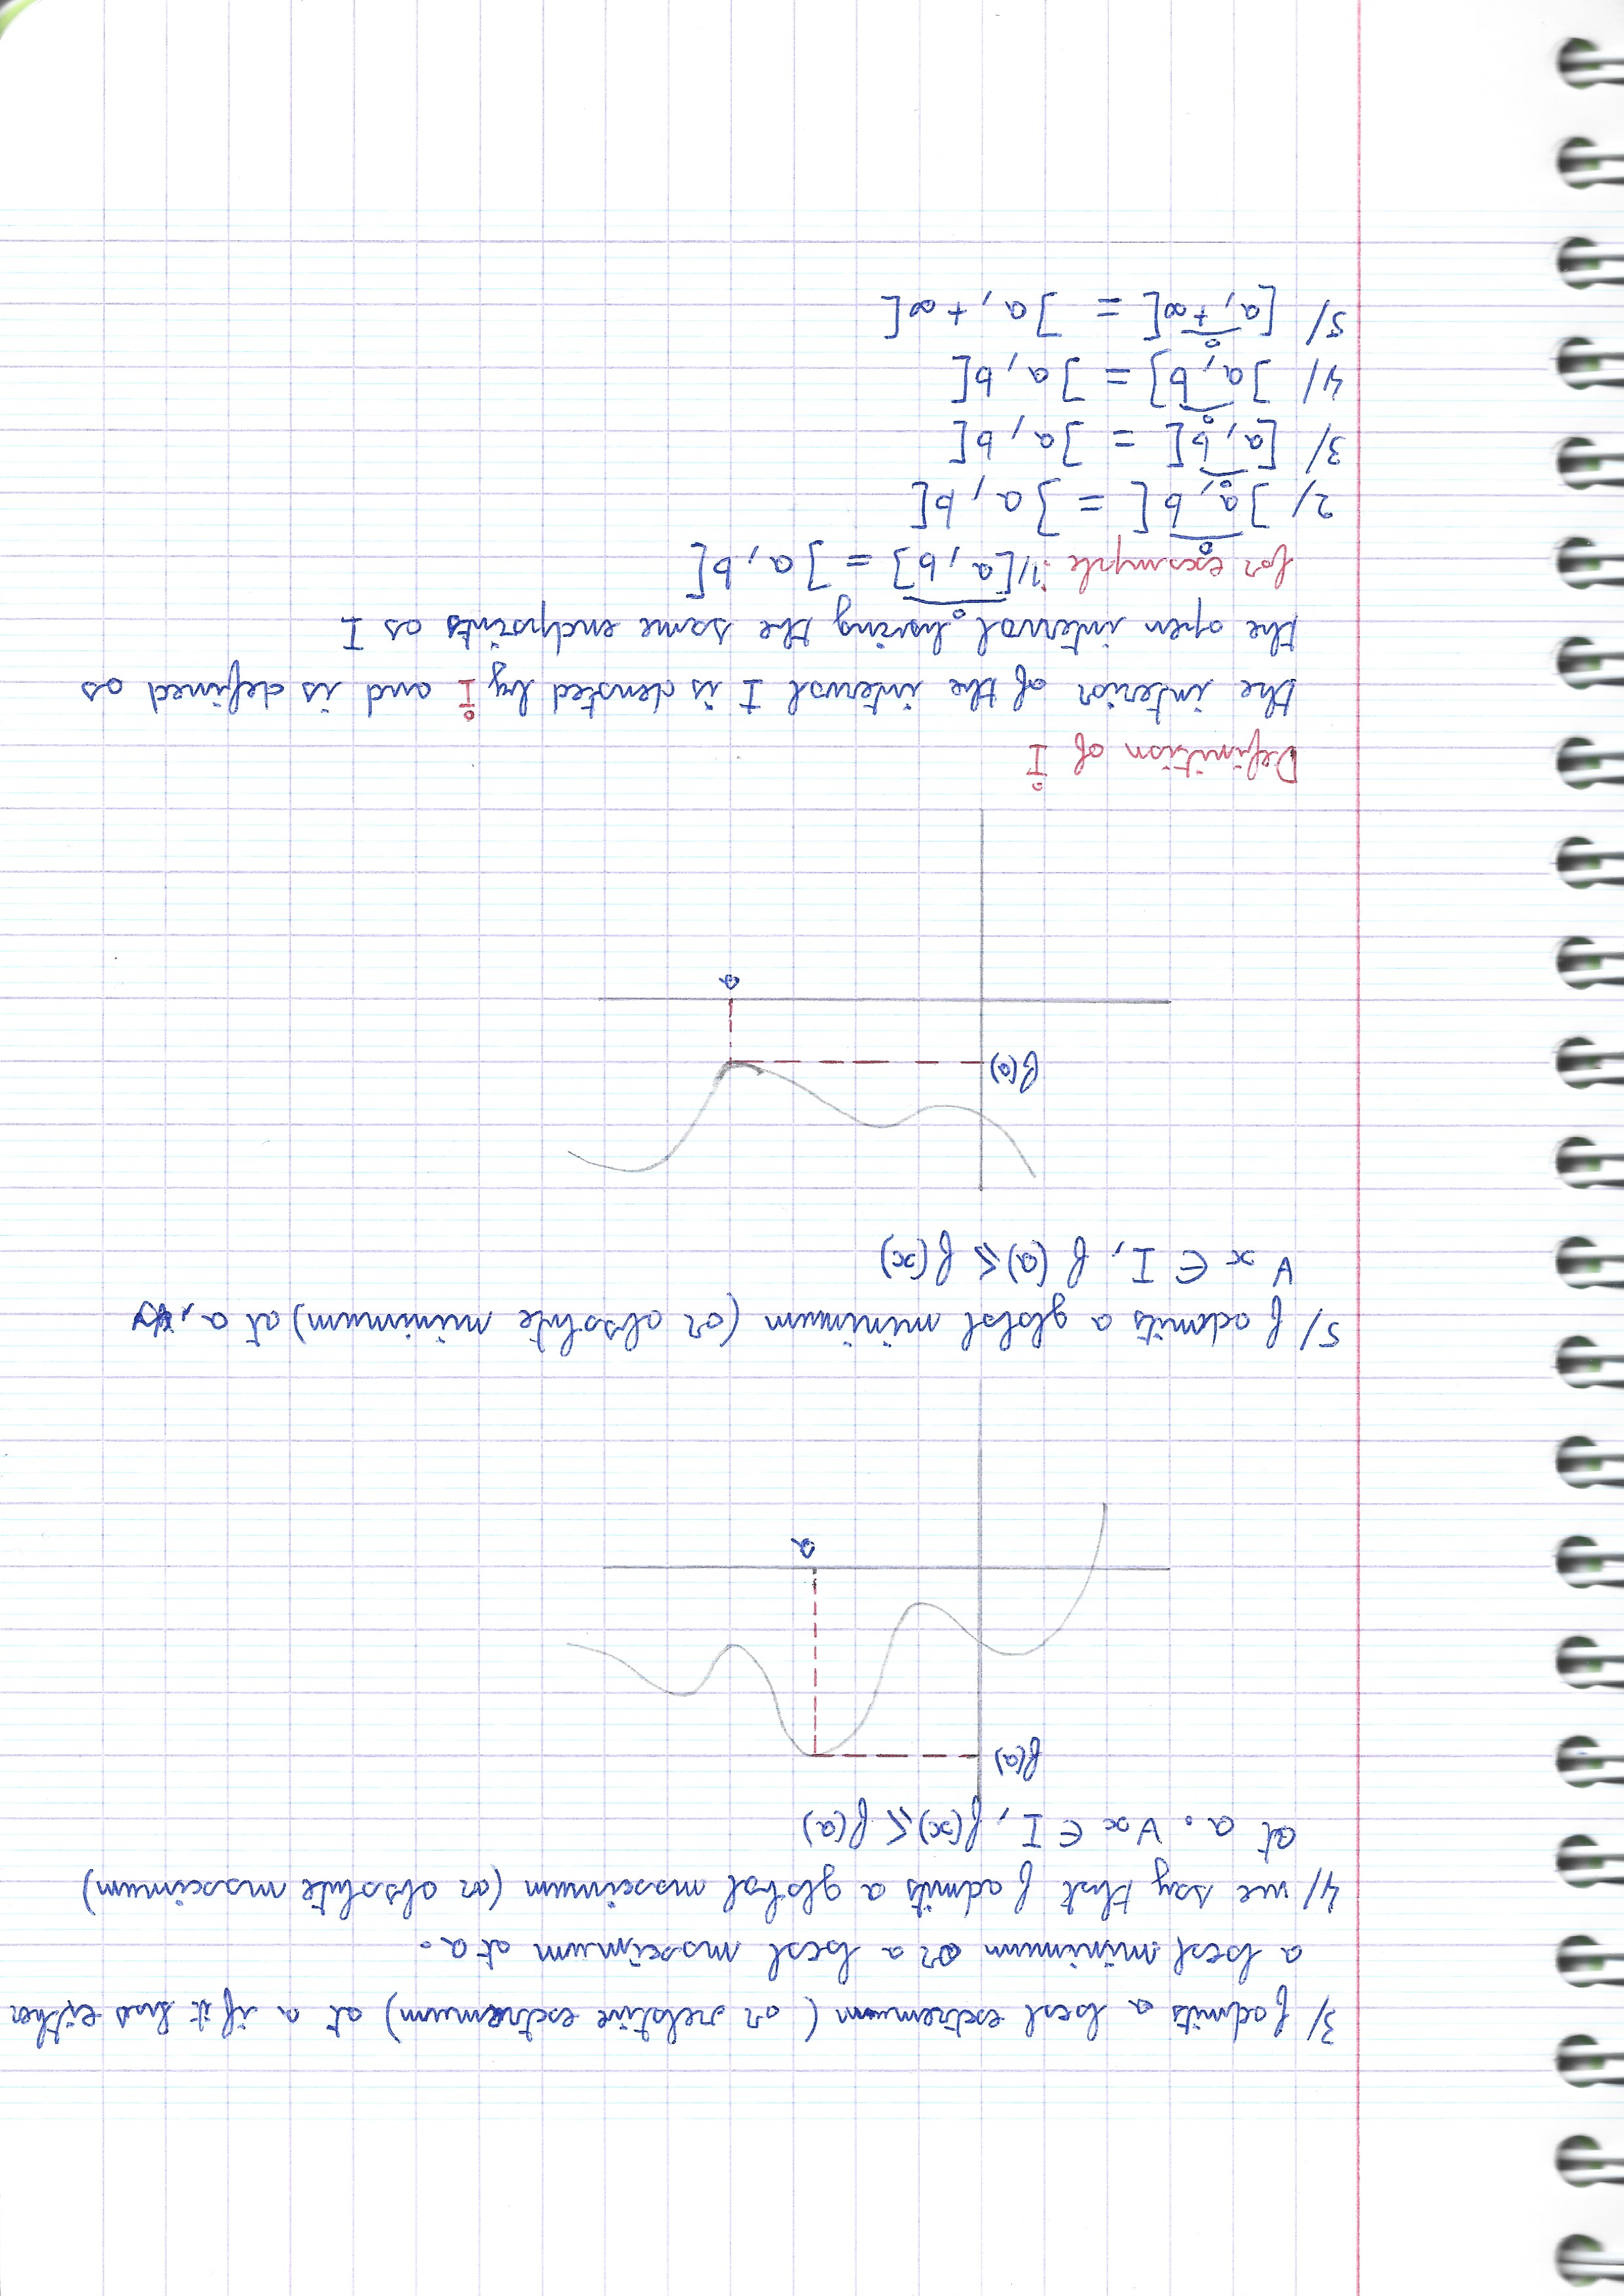 3/ f admits a local extremum ( or relative extremum) at a if it has either
a local minimum or a local maximum at a.
4/ we say that f admits a global maximum (or absolute maximum)
at a. ∀x ∈ I, f(x) ⩽ f(a)
f(a)
a
5/ f admits a global minimum (or absolute minimum) at a,
∀ x ∈ I, f (a) ⩽ f(x)
f(a)
a
Definition of I̊
the interior of the interval I is denoted by I̊ and is defined as
the open interval having the same endpoints as I
for example : 1/ \overset{\circ}{\overline{[a, b]}} = ]a, b[
2/ \overset{\circ}{\overline{]a, b[}} = ]a, b[
3/ \overset{\circ}{\overline{[a, b[}} = ]a, b[
4/ \overset{\circ}{\overline{]a, b]}} = ]a, b[
5/ \overset{\circ}{\overline{[a, +∞[}} = ]a, +∞[